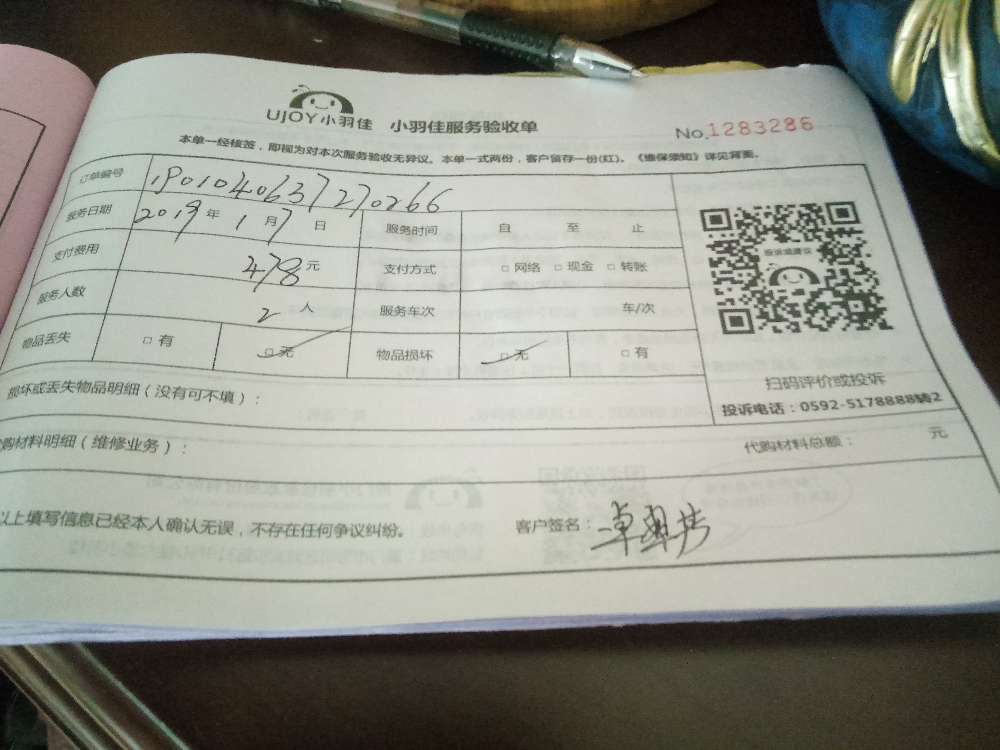 UJOY小羽佳 小羽佳服务验收单 No.1283286
本单一经核签，即视为对本次服务验收无异议。本单一式两份，客户留存一份(红)。《维保须知》详见背面。
订单编号 1901040637270266
服务日期 2019年1月7日 服务时间 自 至 止
支付费用 478元 支付方式 □网络 □现金 □转账
服务人数 2人 服务车次 车/次
物品丢失 □有 □无 物品损坏 □无 □有
扫码评价或投诉
投诉电话：0592-5178888转2
损坏或丢失物品明细（没有可不填）：
代购材料明细（维修业务）： 代购材料总额： 元
以上填写信息已经本人确认无误，不存在任何争议纠纷。 客户签名：